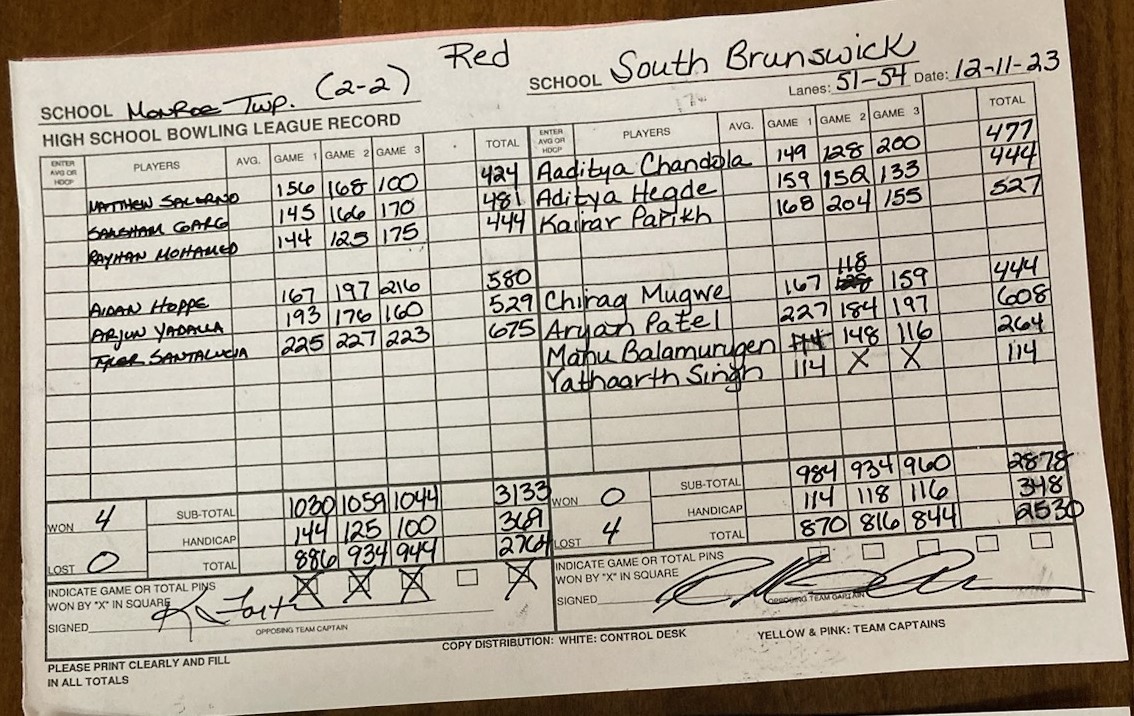 Red
SCHOOL Monroe Twp. (2-2)
SCHOOL South Brunswick
Lanes: 51-54 Date: 12-11-23
HIGH SCHOOL BOWLING LEAGUE RECORD
ENTER AVG OR HDCP PLAYERS AVG. GAME 1 GAME 2 GAME 3 TOTAL
MATTHEW SALERNO 156 168 100 424
SAKSHAM GARG 145 166 170 481
RAYHAN MOHAMED 144 125 175 444
AIDAN HOPPE 167 197 216 580
ARJUN YADALLA 193 176 160 529
TYLER SANTALUCIA 225 227 223 675
SUB-TOTAL 1030 1059 1044 3133
WON 4
HANDICAP 144 125 100 369
LOST 0
TOTAL 886 934 944 2764
INDICATE GAME OR TOTAL PINS
WON BY "X" IN SQUARE
SIGNED
OPPOSING TEAM CAPTAIN
ENTER AVG OR HDCP PLAYERS AVG. GAME 1 GAME 2 GAME 3 TOTAL
Aaditya Chandola 149 128 200 477
Aditya Hegde 159 152 133 444
Kairar Parikh 168 204 155 527
118
Chirag Mugwe 167 159 444
Aryan Patel 227 184 197 608
Manu Balamurugen 114 148 116 264
Yathaarth Singh 114 X X 114
SUB-TOTAL 984 934 960 2878
WON 0
HANDICAP 114 118 116 348
LOST 4
TOTAL 870 816 844 2530
INDICATE GAME OR TOTAL PINS
WON BY "X" IN SQUARE
SIGNED
OPPOSING TEAM CAPTAIN
COPY DISTRIBUTION: WHITE: CONTROL DESK YELLOW & PINK: TEAM CAPTAINS
PLEASE PRINT CLEARLY AND FILL
IN ALL TOTALS